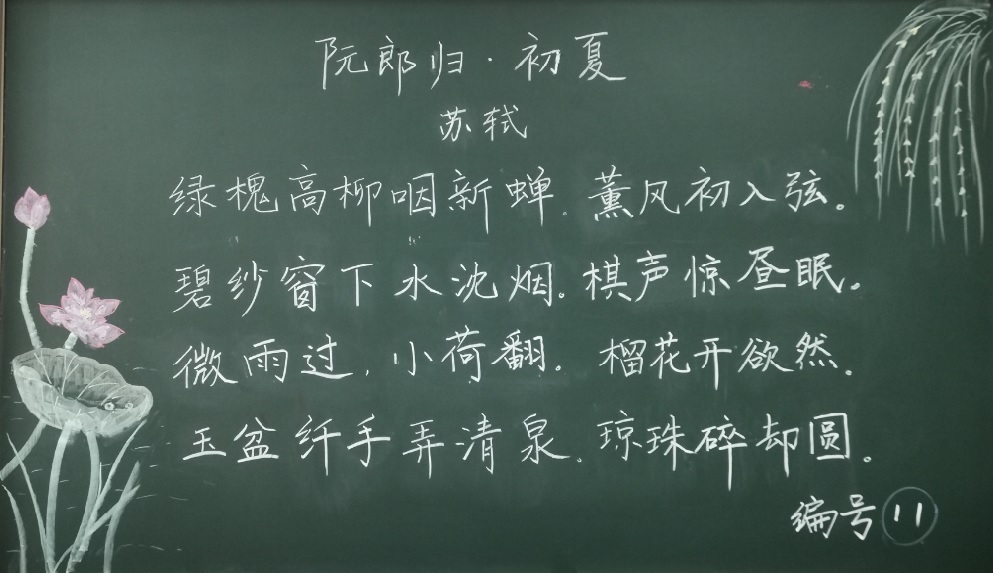 阮郎归·初夏
苏轼
绿槐高柳咽新蝉。薰风初入弦。
碧纱窗下水沈烟。棋声惊昼眠。
微雨过,小荷翻。榴花开欲然。
玉盆纤手弄清泉。琼珠碎却圆。
编号 11